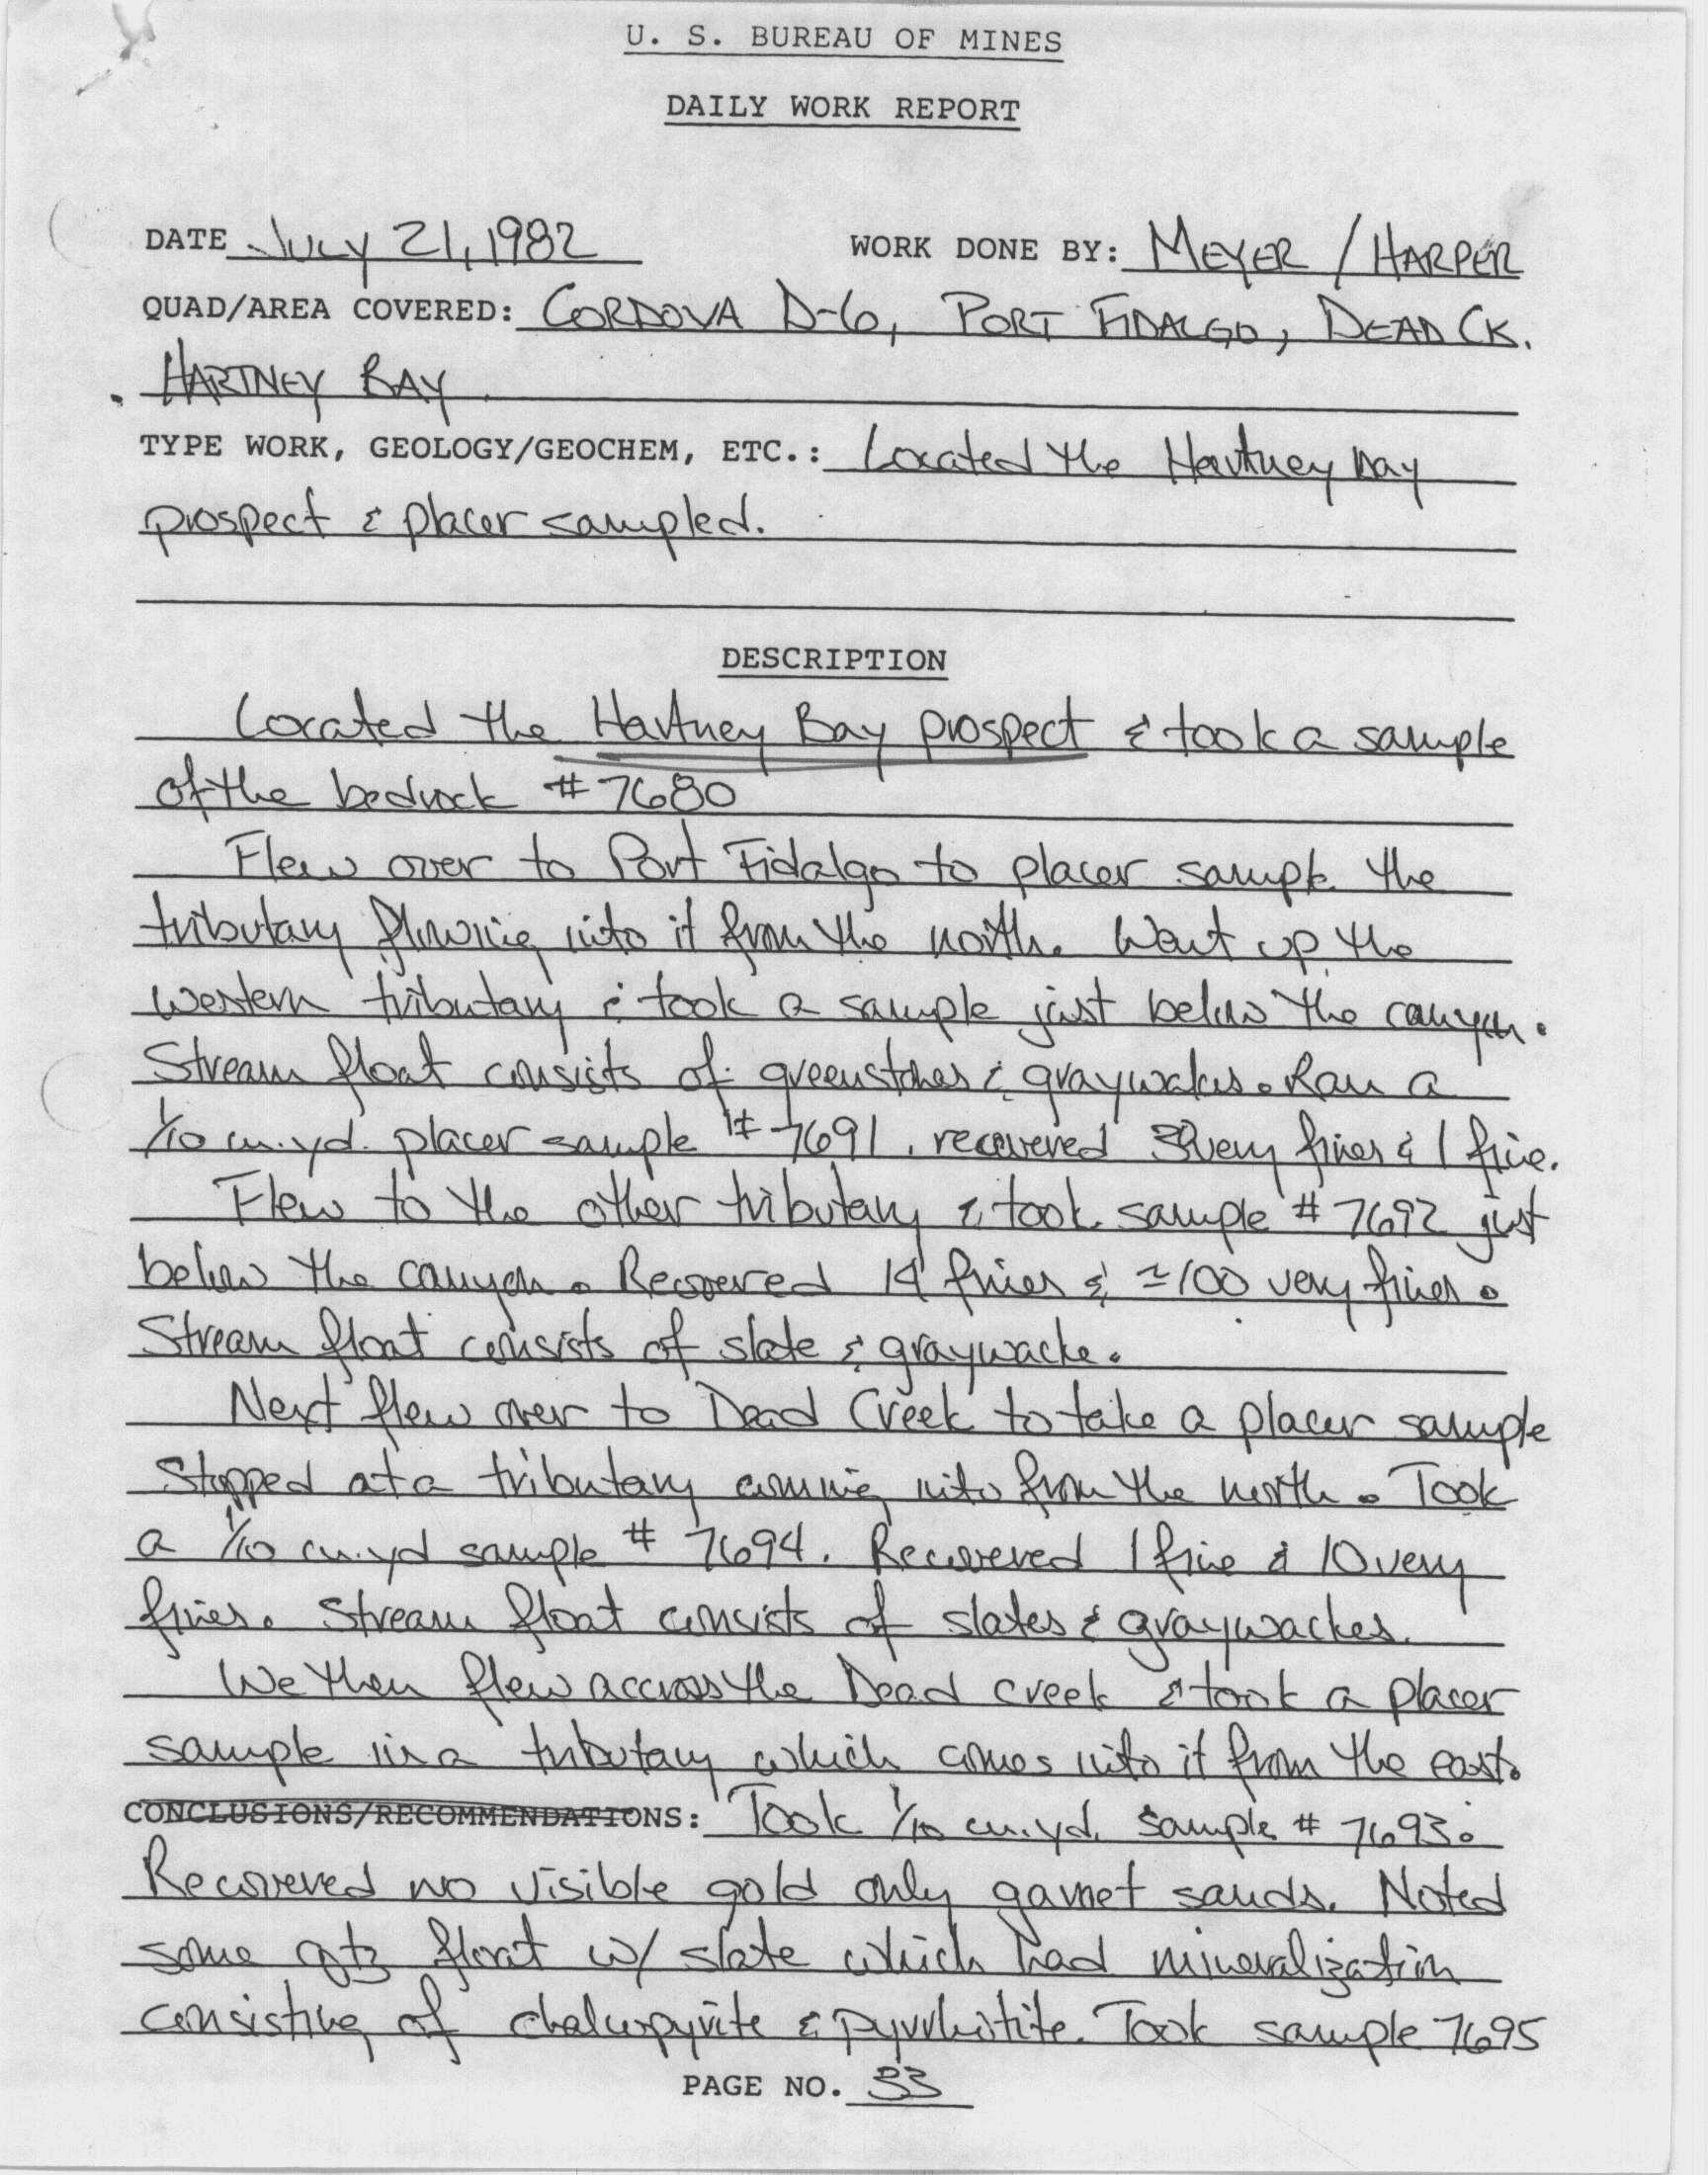 U. S. BUREAU OF MINES
DAILY WORK REPORT
DATE July 21, 1982 WORK DONE BY: MEYER / HARPER
QUAD/AREA COVERED: CORDOVA D-6, PORT FIDALGO, DEAD CK.
HARTNEY BAY
TYPE WORK, GEOLOGY/GEOCHEM, ETC.: Located the Hartney Bay
prospect & placer sampled.
DESCRIPTION
Located the Hartney Bay prospect & took a sample
of the bedrock # 7680
Flew over to Port Fidalgo to placer sample the
tributary flowing into it from the north. Went up the
western tributary & took a sample just below the canyon.
Stream float consists of greenstones & graywackes. Ran a
1/10 cu.yd. placer sample # 7691. recovered very fines & 1 fine.
Flew to the other tributary & took sample # 7692 just
below the canyon. Recovered 14 fines & ≃100 very fines.
Stream float consists of slate & graywacke.
Next flew over to Dead Creek to take a placer sample
Stopped at a tributary coming into from the north. Took
a 1/10 cu.yd sample # 7694. Recovered 1 fine & 10 very
fines. Stream float consists of slates & graywackes.
We then flew accross the Dead Creek & took a placer
sample in a tributary which comes into it from the east.
CONCLUSIONS/RECOMMENDATIONS: Took 1/10 cu.yd. sample # 7693.
Recovered no visible gold only garnet sands. Noted
some qtz float w/ slate which had mineralization
consisting of chalcopyrite & pyrrhotite. Took sample 7695
PAGE NO. 33